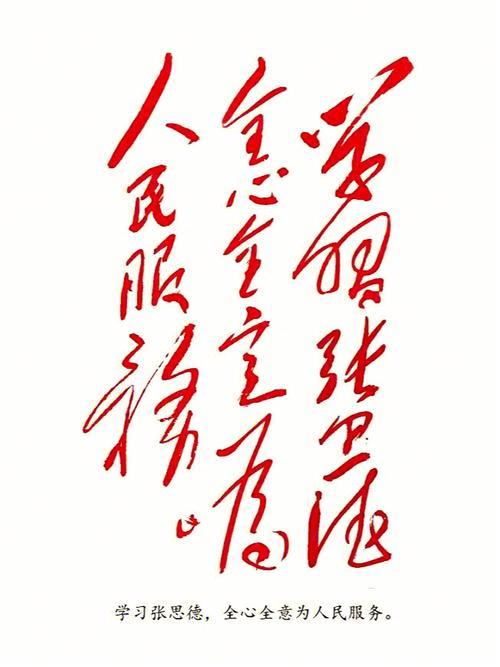 學習张思德
全心全意為
人民服務。
学习张思德，全心全意为人民服务。